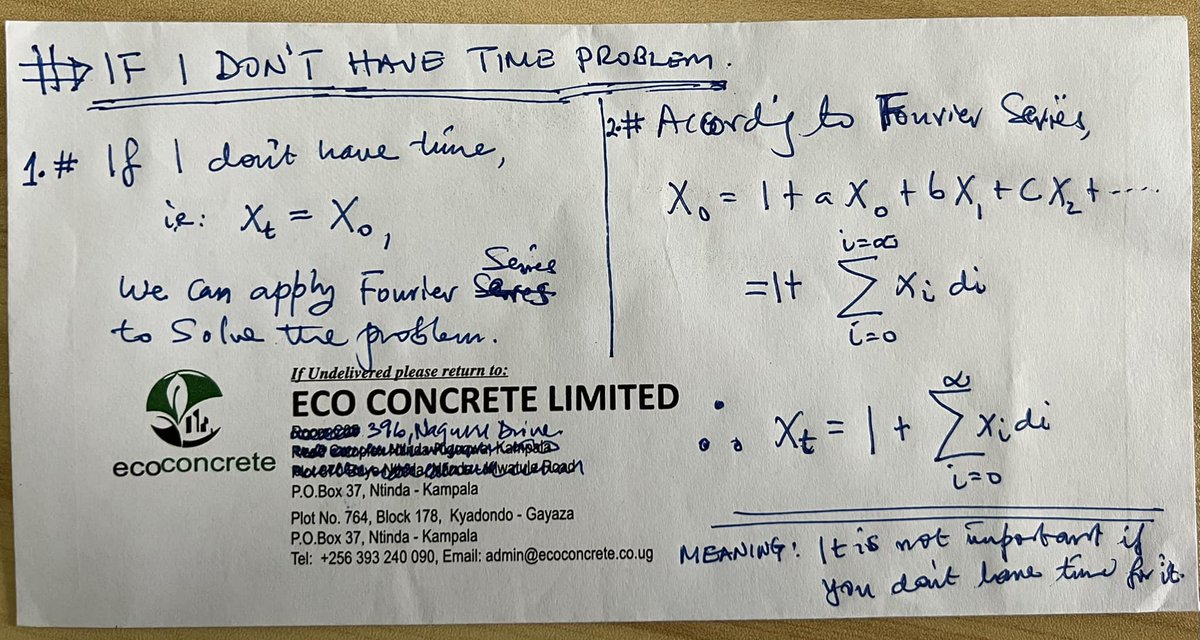 #> IF I DON'T HAVE TIME PROBLEM.
1. # If I don't have time,
i.e: Xt = X0,
we can apply Fourier Series
to solve the problem.
2. # According to Fourier Series,
X0 = 1 + a X0 + b X1 + c X2 + ....
i=∞
= 1 + ∑ xi di
i=0
∞
∴ Xt = 1 + ∑ xi di
i=0
MEANING: It is not important if
you don't have time for it.
If Undelivered please return to:
ECO CONCRETE LIMITED
396, Naguru Drive
ecoconcrete
P.O.Box 37, Ntinda - Kampala
Plot No. 764, Block 178, Kyadondo - Gayaza
P.O.Box 37, Ntinda - Kampala
Tel: +256 393 240 090, Email: admin@ecoconcrete.co.ug